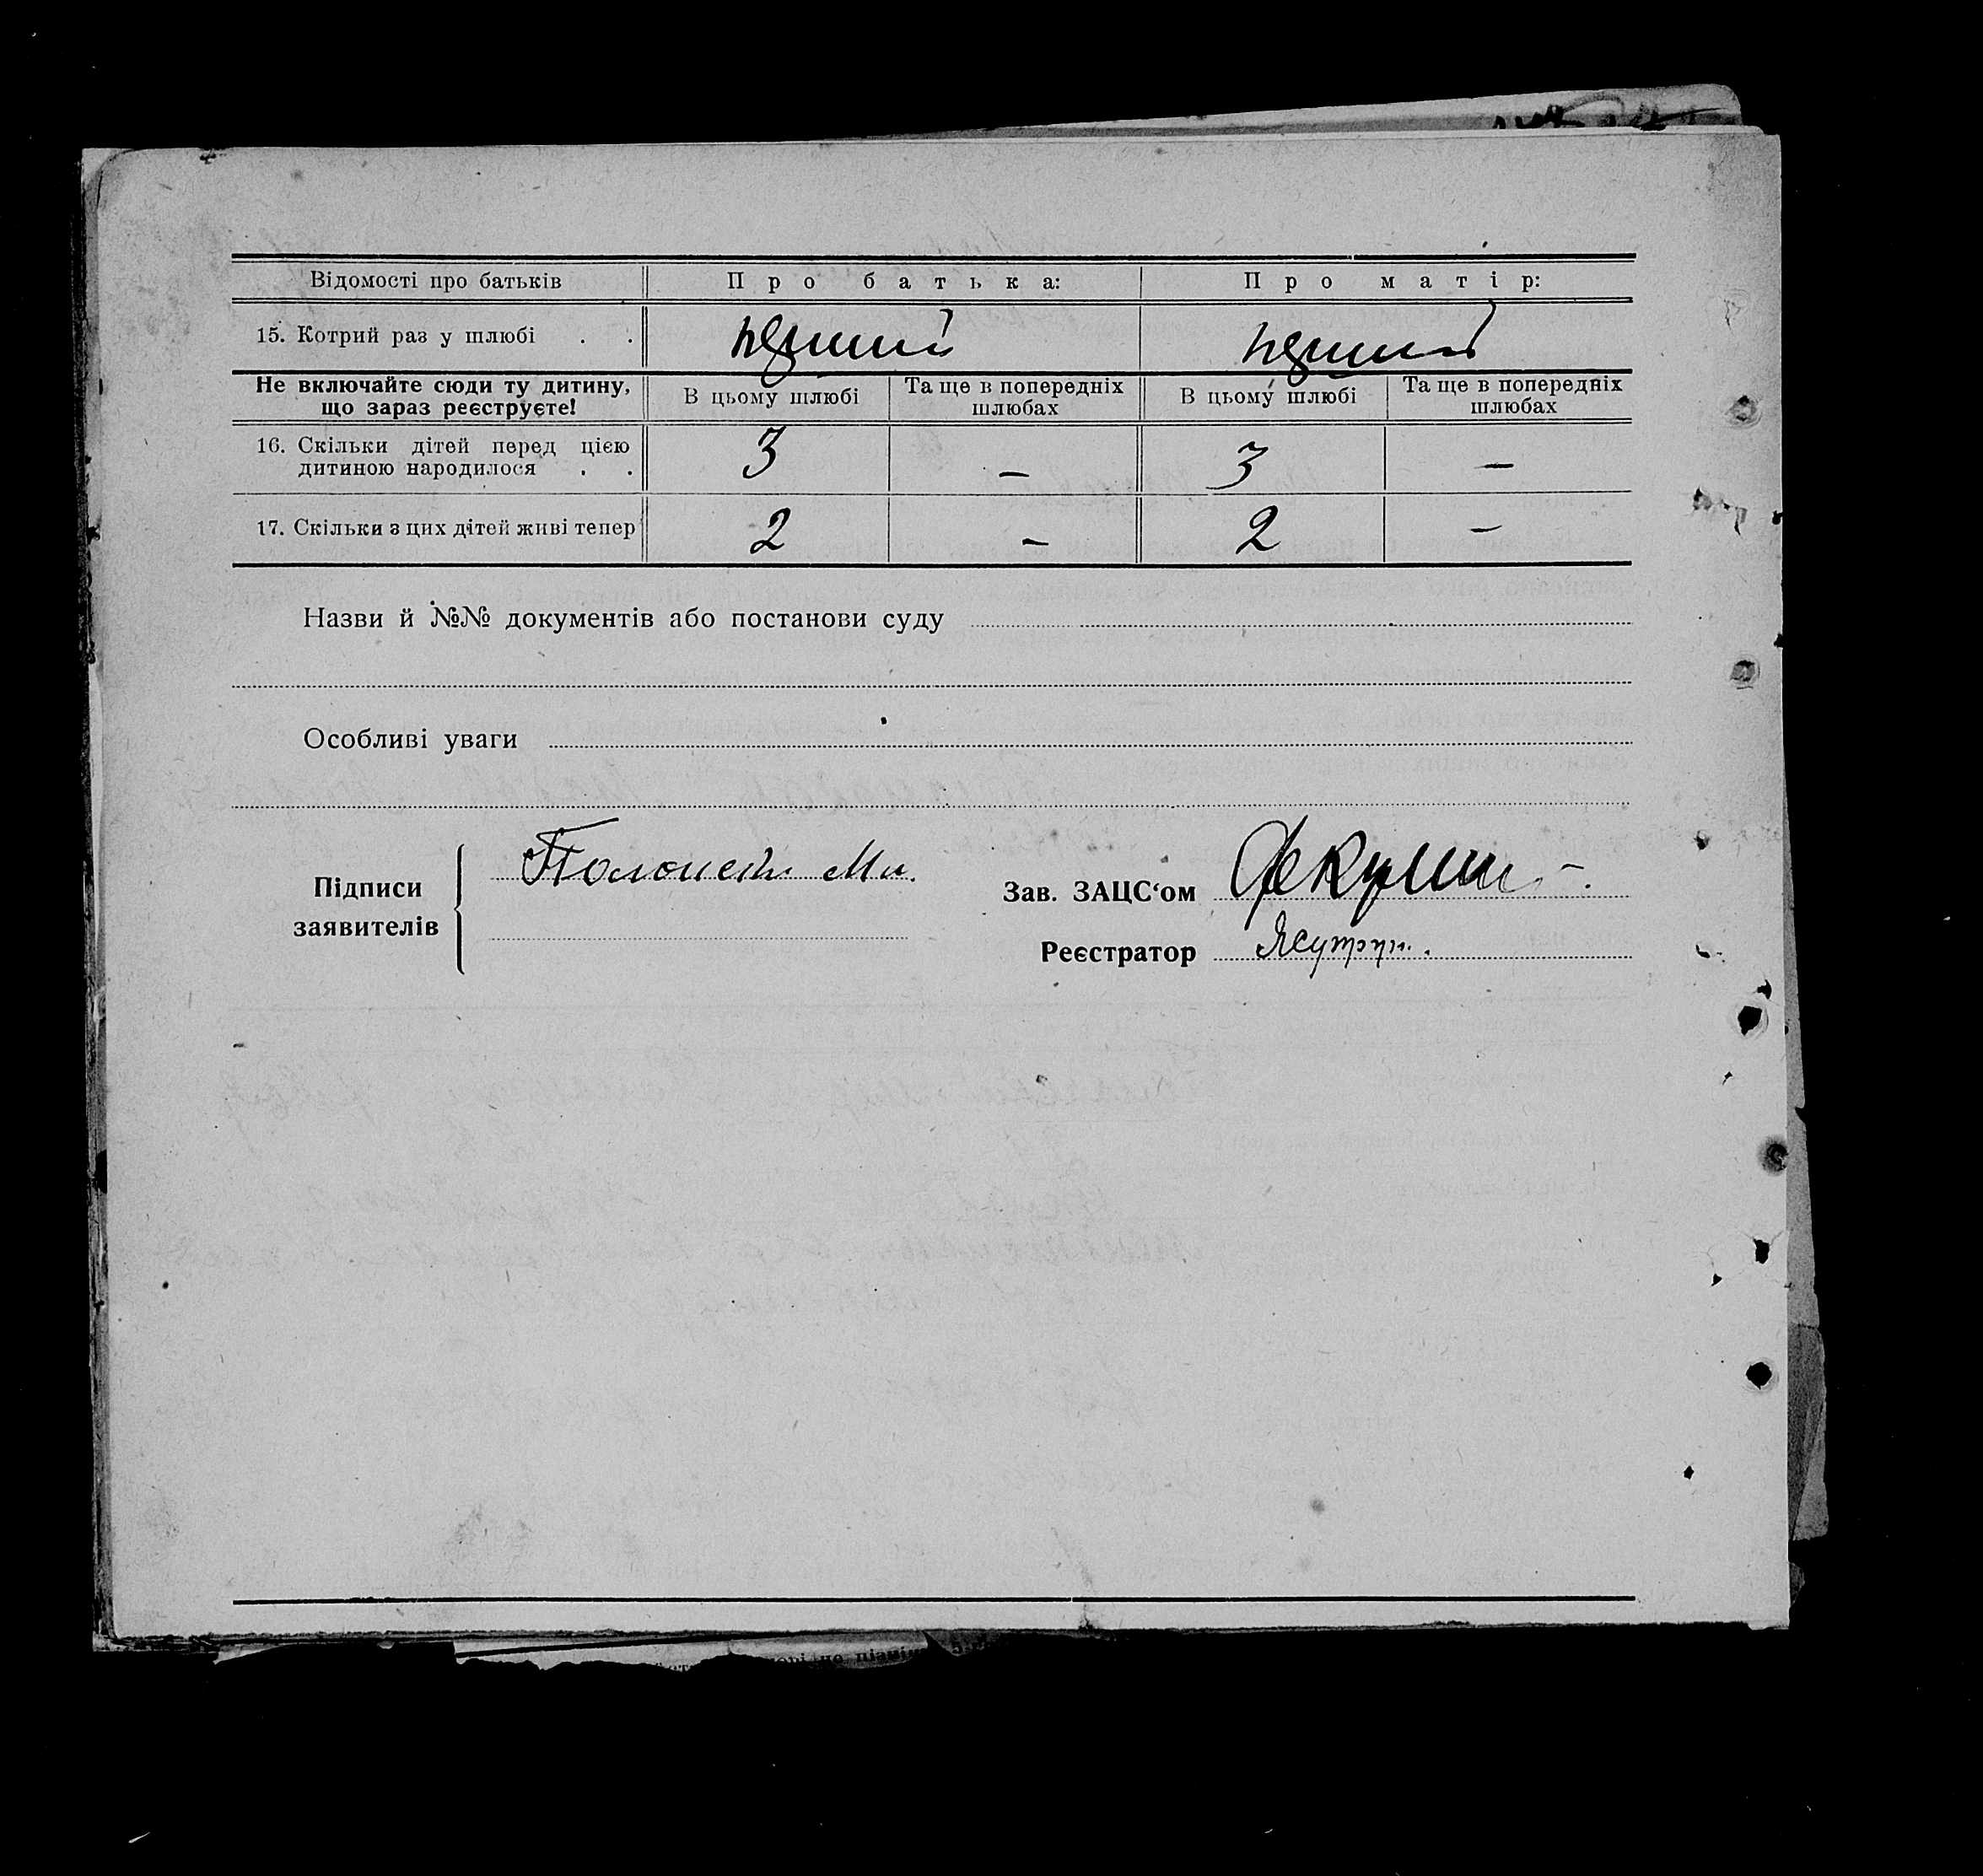 Відомості про батьків Про батька: Про матір:
15. Котрий раз у шлюбі . . перший перший
Не включайте сюди ту дитину, що зараз реєструєте! В цьому шлюбі Та ще в попередніх шлюбах В цьому шлюбі Та ще в попередніх шлюбах
16. Скільки дітей перед цією
дитиною народилося . . 3 – 3 –
17. Скільки з цих дітей живі тепер 2 – 2 –
Назви й №№ документів або постанови суду
Особливі уваги
Підписи
заявителів
Зав. ЗАЦС‘ом
Реєстратор